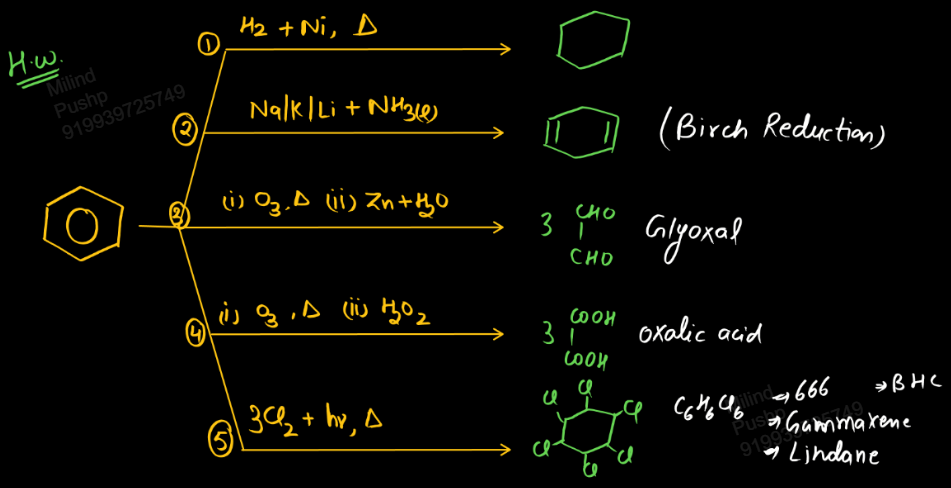 H.W.
Milind
Pushp
919939725749
① H₂ + Ni, Δ
② Na/K/Li + NH₃(l)
(Birch Reduction)
③ (i) O₃, Δ (ii) Zn + H₂O
3 CHO
CHO
Glyoxal
④ (i) O₃, Δ (ii) H₂O₂
3 COOH
COOH
oxalic acid
⑤ 3Cl₂ + hν, Δ
Cl Cl Cl Cl Cl Cl
C₆H₆Cl₆ → 666 → BHC
→ Gammaxene
→ Lindane
Milind
Pushp
919939725749